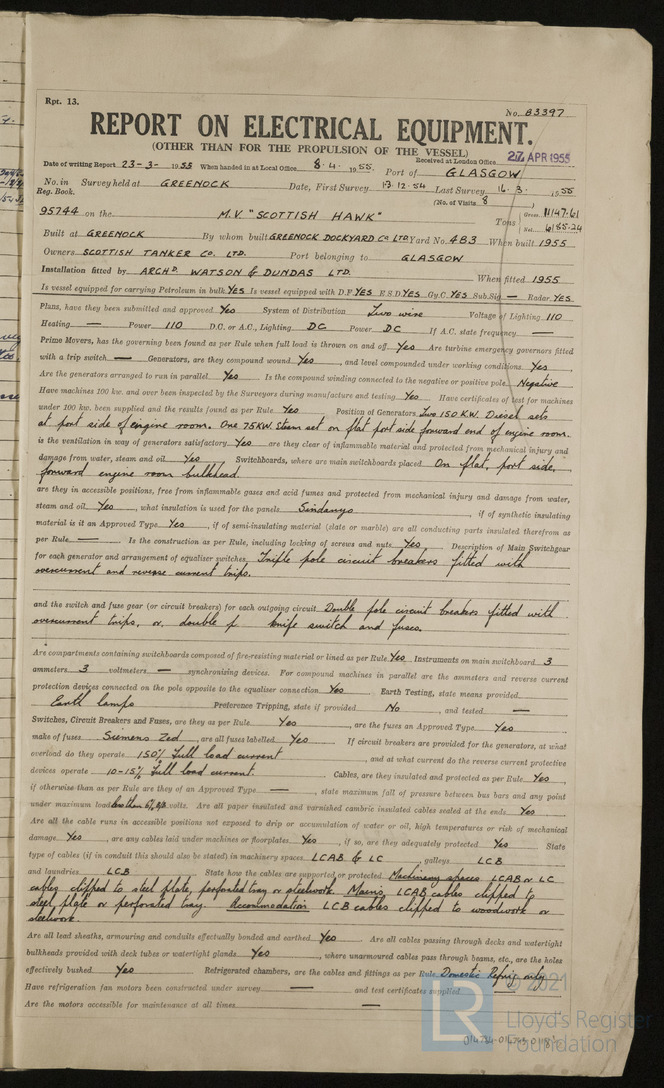 Rpt. 13.
No. 83397
REPORT ON ELECTRICAL EQUIPMENT.
(OTHER THAN FOR THE PROPULSION OF THE VESSEL)
Received at London Office 27 APR 1955
Date of writing Report 23-3- 1955 When handed in at Local Office 8.4. 1955. Port of GLASGOW
No. in Reg. Book. Survey held at GREENOCK Date, First Survey 13.12.54 Last Survey 16.3. 1955
(No. of Visits 8 )
95744 on the M.V. "SCOTTISH HAWK" Tons { Gross 11147.61 Net 6185.24
Built at GREENOCK By whom built GREENOCK DOCKYARD Co LTD Yard No. 483 When built 1955
Owners SCOTTISH TANKER Co. LTD. Port belonging to GLASGOW
Installation fitted by ARCHD. WATSON & DUNDAS LTD. When fitted 1955
Is vessel equipped for carrying Petroleum in bulk YES Is vessel equipped with D.F. YES E.S.D. YES Gy.C. YES Sub.Sig. — Radar YES
Plans, have they been submitted and approved Yes System of Distribution Two wire Voltage of Lighting 110
Heating — Power 110 D.C. or A.C., Lighting DC Power DC If A.C. state frequency —
Prime Movers, has the governing been found as per Rule when full load is thrown on and off Yes Are turbine emergency governors fitted
with a trip switch — Generators, are they compound wound Yes, and level compounded under working conditions Yes,
Are the generators arranged to run in parallel Yes Is the compound winding connected to the negative or positive pole Negative
Have machines 100 kw. and over been inspected by the Surveyors during manufacture and testing Yes Have certificates of test for machines
under 100 kw. been supplied and the results found as per Rule Yes Position of Generators Two 150 KW. Diesel sets
at port side of engine room. One 75KW. Steam set on flat port side forward end of engine room.
is the ventilation in way of generators satisfactory Yes are they clear of inflammable material and protected from mechanical injury and
damage from water, steam and oil Yes Switchboards, where are main switchboards placed On flat, port side,
forward engine room bulkhead
are they in accessible positions, free from inflammable gases and acid fumes and protected from mechanical injury and damage from water,
steam and oil Yes, what insulation is used for the panels Sindanyo, if of synthetic insulating
material is it an Approved Type Yes, if of semi-insulating material (slate or marble) are all conducting parts insulated therefrom as
per Rule — Is the construction as per Rule, including locking of screws and nuts Yes Description of Main Switchgear
for each generator and arrangement of equaliser switches Triple pole circuit breakers fitted with
overcurrent and reverse current trips.
and the switch and fuse gear (or circuit breakers) for each outgoing circuit Double pole circuit breakers fitted with
overcurrent trips, or double p knife switch and fuses.
Are compartments containing switchboards composed of fire-resisting material or lined as per Rule Yes Instruments on main switchboard 3
ammeters 3 voltmeters — synchronizing devices. For compound machines in parallel are the ammeters and reverse current
protection devices connected on the pole opposite to the equaliser connection Yes Earth Testing, state means provided
Earth lamps Preference Tripping, state if provided No, and tested —
Switches, Circuit Breakers and Fuses, are they as per Rule Yes, are the fuses an Approved Type Yes
make of fuses Siemens Zed, are all fuses labelled Yes If circuit breakers are provided for the generators, at what
overload do they operate 150% Full load current, and at what current do the reverse current protective
devices operate 10-15% full load current. Cables, are they insulated and protected as per Rule Yes,
if otherwise than as per Rule are they of an Approved Type —, state maximum fall of pressure between bus bars and any point
under maximum load less than 6% volts. Are all paper insulated and varnished cambric insulated cables sealed at the ends Yes
Are all the cable runs in accessible positions not exposed to drip or accumulation of water or oil, high temperatures or risk of mechanical
damage Yes, are any cables laid under machines or floorplates Yes, if so, are they adequately protected Yes State
type of cables (if in conduit this should also be stated) in machinery spaces LCAB & LC, galleys LCB
and laundries LCB State how the cables are supported or protected Machinery spaces LCAB or LC
cables clipped to steel plate, perforated tray or steelwork. Mains, LCAB cables clipped to
steel plate or perforated tray. Accommodation LCB cables clipped to woodwork or
steelwork.
Are all lead sheaths, armouring and conduits effectually bonded and earthed Yes Are all cables passing through decks and watertight
bulkheads provided with deck tubes or watertight glands Yes, where unarmoured cables pass through beams, etc., are the holes
effectively bushed Yes Refrigerated chambers, are the cables and fittings as per Rule Domestic Refrig. only
Have refrigeration fan motors been constructed under survey — and test certificates supplied —
Are the motors accessible for maintenance at all times —
© 2021
LR
Lloyd's Register
Foundation